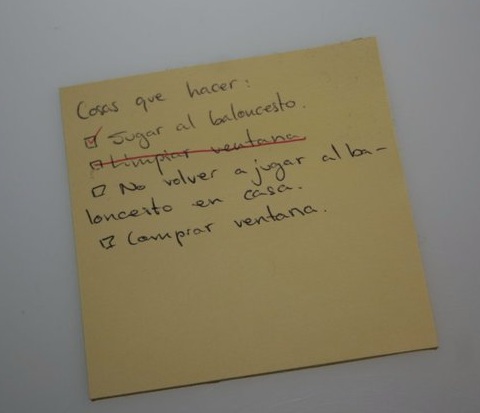 Cosas que hacer:
☑ Jugar al baloncesto.
☐ Limpiar ventana
☐ No volver a jugar al ba-
loncesto en casa.
☐ Comprar ventana.